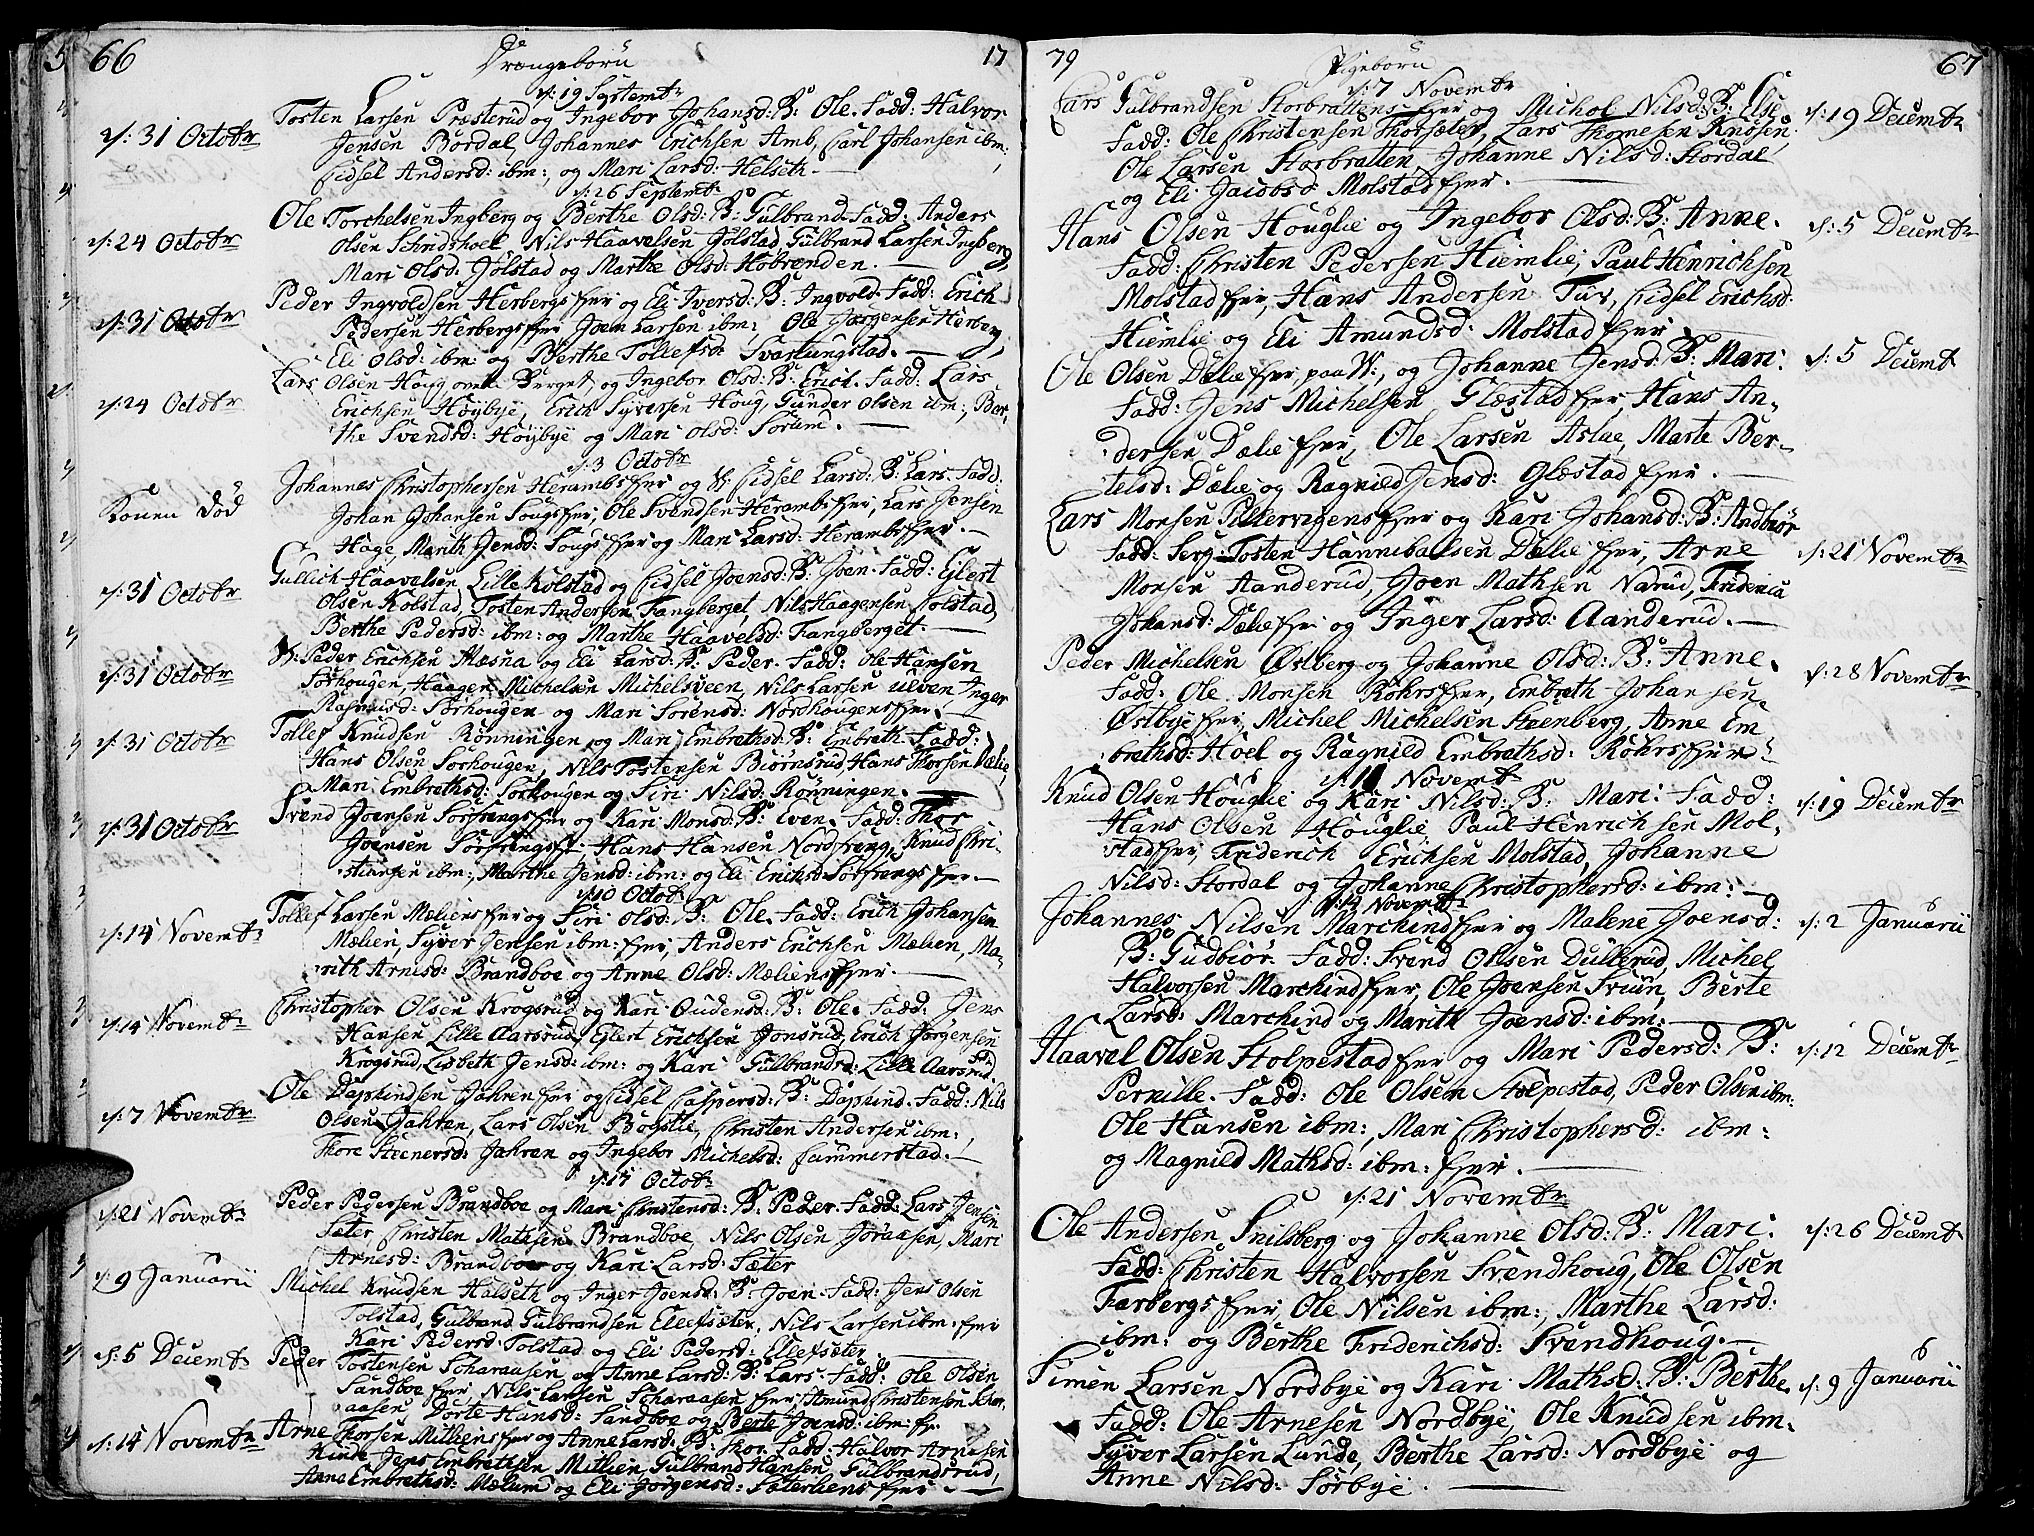 66 Drængebörn 17
d: 19 Septembr
Tosten Larsen Præsterud og Ingebor Johansd: B: Ole. Fadd: Halvor
d: 31 Octobr Jensen Bordal, Johannes Erichsen Amb, Carl Johansen ibm:,
Eidsel Andersd: ibm:, og Mari Larsd: Helseth.
d: 26 Septembr
Ole Torchelsen Ingberg og Berthe Olsd: B: Gulbrand. Fadd: Anders
d: 24 Octobr Olsen Nils Haavelsen Jolstad, Gulbrand Larsen Ingberg,
Mari Olsd: Jolstad og Marthe Olsd: Hobrænden.
Peder Ingvoldsen Herbergs Ejer og Eli Iversd: B: Ingvold. Fadd: Erich
d: 31 Octobr Pedersen Herbergs Ejer Joen Larsen ibm:, Ole Jørgensen Herberg,
Eli Olsd: ibm: og Berthe Tollefsd: Svartungstad.
Lars Olsen Houg og Ingebor Olsd: B: Erich. Fadd: Lars
d: 24 Octobr Erichsen Höybye, Erich Syversen Houg, Gunder Olsen ibm:, Ber,
the Svendsd: Höybye og Mari Olsd: Sorum.
d: 3 Octobr
Johannes Christophersen Herambs Ejer og Eidsel Larsd: B: Lars. Fadd:
Konen död Johan Johansen Sougs Ejer, Ole Svendsen Herambs Ejer, Lars Jensen
Hage, Marith Jensd: Sougs Ejer og Mari Larsd: Herambs Ejer.
Gullich Haavelsen Lille Kolstad og Eidsel Joensd: B: Joen. Fadd: Eglert
d: 31 Octobr Olsen Kolstad, Tosten Andersen Fangberget, Nils Haagensen Jolstad,
Berthe Pedersd: ibm: og Marthe Haavelsd: Fangberget.
Peder Erichsen Mæsna og Eli Larsd: B: Peder. Fadd: Ole Hansen
d: 31 Octobr Sorhougen, Haagen Michelsen Michelsveen, Nils Larsen Ulven, Inger
Rasmusd: Sorhougen og Mari Sorensd: Nordhougens Ejer.
Tollef Knudsen Rönningen og Mari Embrethsd: B: Embreth. Fadd:
d: 31 Octobr Hans Olsen Sorhougen, Nils Tostensen Biörnsrud, Hans Thorsen Dælie,
Mari Embrethsd: Sorhougen og Siri Nilsd: Rönningen.
Svend Joensen Sorfrengs Ejer og Kari Monsd: B: Even. Fadd: Thor
d: 31 Octobr Joensen Sorfrengs Ejer, Hans Hansen Nordfreng, Knud Chri-
stiansen ibm:, Marthe Jensd: ibm: og Eli Erichsd: Sorfrengs Ejer.
d: 10 Octobr
Tollef Larsen Mæliens Ejer og Siri Olsd: B: Ole. Fadd: Erich Johansen
d: 14 Novembr Mælien, Syver Jensen ibm: Ejer, Anders Erichsen Mælien, Ma-
rith Arnesd: Brandboe og Anne Olsd: Mæliens Ejer.
Christopher Olsen Krogsrud og Kari Oudensd: B: Ole. Fadd: Jens
d: 14 Novembr Hansen Lille Aarsrud, Eglert Erichsen Jonsrud, Erich Jörgensen
Krogsrud, Lisbeth Jensd: ibm: og Kari Gulbrandsd: Lille Aarsrud.
Ole Dapfindsen Jahren Ejer og Eidsel Caspersd: B: Dapfind. Fadd: Nils
d: 7 Novembr Olsen Jahren, Lars Olsen Bogstie, Christen Andersen ibm:,
Thore Steenersd: Jahren og Ingebor Michelsd: Cammerstad.
d: 17 Octobr
Peder Pedersen Brandboe og Mari Christensd: B: Peder. Fadd: Lars Jensen
d: 21 Novembr Sæter, Christen Mathsen Brandboe, Nils Olsen Joraasen, Mari
Arnesd: Brandboe og Kari Larsd: Sæter
Michel Knudsen Halseth og Inger Joensd: B: Joen. Fadd: Jens Olsen
d: 9 Januarii Tolstad, Gulbrand Gulbrandsen Ellefsæter, Nils Larsen ibm: Ejer
Kari Pedersd: Tolstad og Eli Pedersd: Ellefsæter.
d: 5 Decembr Peder Tostensen Scharaasen og Anne Larsd: B: Lars. Fadd: Ole Olsen
Sandboe Ejer, Nils Larsen Scharaasen Ejer, Amund Christensen Schar,
aasen, Dorte Hansd: Sandboe og Berte Joensd: ibm:
d: 14 Novembr Arne Thorsen Mitliens Ejer og Anne Larsd: B: Thor. Fadd: Halvor Arnesen
Kinde, Jens Embrethsen Mitlien, Gulbrand Hansen Gulbrandsrud,
Anne Embrethsd: Mælum og Eli Jörgensd: Sæterliens Ejer.
79 Pigebörn 67
d: 7 Novembr
Lars Gulbrandsen Storbrattens Ejer og Michol Nilsd: B: Else. d: 19 Decembr
Fadd: Ole Christensen Thorsæter, Lars Thomesen Knosen,
Ole Larsen Storbratten, Johanne Nilsd: Stordal
og Eli Jacobsd: Molstad Ejer.
Hans Olsen Houglie og Ingebor Olsd: B: Anne. d: 5 Decembr
Fadd: Christen Pedersen Hiemlie, Paul Henrichsen
Molstad Ejer, Hans Andersen Tuv, Eidsel Erichsd:
Hiemlie og Eli Amundsd: Molstad Ejer
Ole Olsen Dælie Ejer, paa W:, og Johanne Jensd: B: Mari. d: 5 Decembr
Fadd: Jens Michelsen Glæstad Ejer, Hans An-
dersen Dælie Ejer, Ole Larsen Aslae, Marte Ber-
telsd: Dælie og Ragnild Jensd: Glæstad Ejer.
Lars Monsen Pillervigens Ejer og Kari Johansd: B: Andbiör
Fadd: Serg: Tosten Hannibalsen Dælie Ejer, Arne d: 21 Novembr
Monsen Aanderud, Joen Mathsen Narud, Fridericia
Johansd: Dælie Ejer og Inger Larsd: Aanderud.
Peder Michelsen Østberg og Johanne Olsd: B: Anne. d: 28 Novembr
Fadd: Ole Monsen Röhrs Ejer, Embreth Johansen
Østbye Ejer, Michel Michelsen Steenberg, Anne Em-
brethsd: Hoel og Ragnild Embrethsd: Röhrs Ejer
d: 11 Novembr
Knud Olsen Houglie og Kari Nilsd: B: Mari. Fadd: d: 19 Decembr
Hans Olsen Houglie, Paul Henrichsen Mol-
stad Ejer, Friderich Erichsen Molstad, Johanne
Nilsd: Stordal og Johanne Christophersd: ibm:
d: 14 Novembr
Johannes Nilsen Marchind Ejer og Malene Joensd: d: 2 Januarii
B: Gudbiör. Fadd: Svend Olsen Dullerud, Michel
Halvorsen Marchind Ejer, Ole Joensen Sviun, Berte
Larsd: Marchind og Marith Joensd: ibm:
Haavel Olsen Stolpestad Ejer og Mari Pedersd: B: d: 12 Decembr
Pernille. Fadd: Ole Olsen Stolpestad, Peder Olsen ibm:
Ole Hansen ibm:, Mari Christophersd: ibm:
og Magnild Mathsd: ibm: Ejer.
d: 21 Novembr
Ole Andersen Snilsberg og Johanne Olsd: B: Mari. d: 26 Decembr
Fadd: Christen Halvorsen Svendhoug, Ole Olsen
Farbergs Ejer, Ole Nilsen ibm:, Marthe Larsd:
ibm: og Berthe Friderichsd: Svendhoug.
Simen Larsen Nordbye og Kari Mathsd: B: Berthe. d: 9 Januarii
Fadd: Ole Arnesen Nordbye, Ole Knudsen ibm.
Syver Larsen Lunde, Berthe Larsd: Nordbye og
Anne Nilsd: Sorbye.